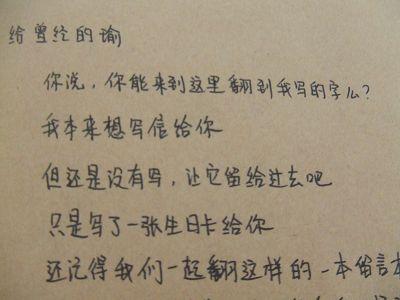 给曾经的瑜
你说，你能来到这里翻到我写的字么？
我本来想写信给你
但还是没有写，让它留给过去吧
只是写了一张生日卡给你
还记得我们一起翻这样的一本留言本